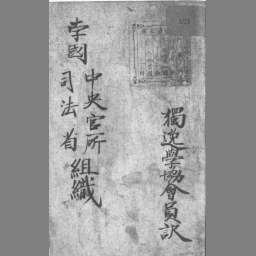 獨逸學協會員訳
孛國
中央官所
司法省組織